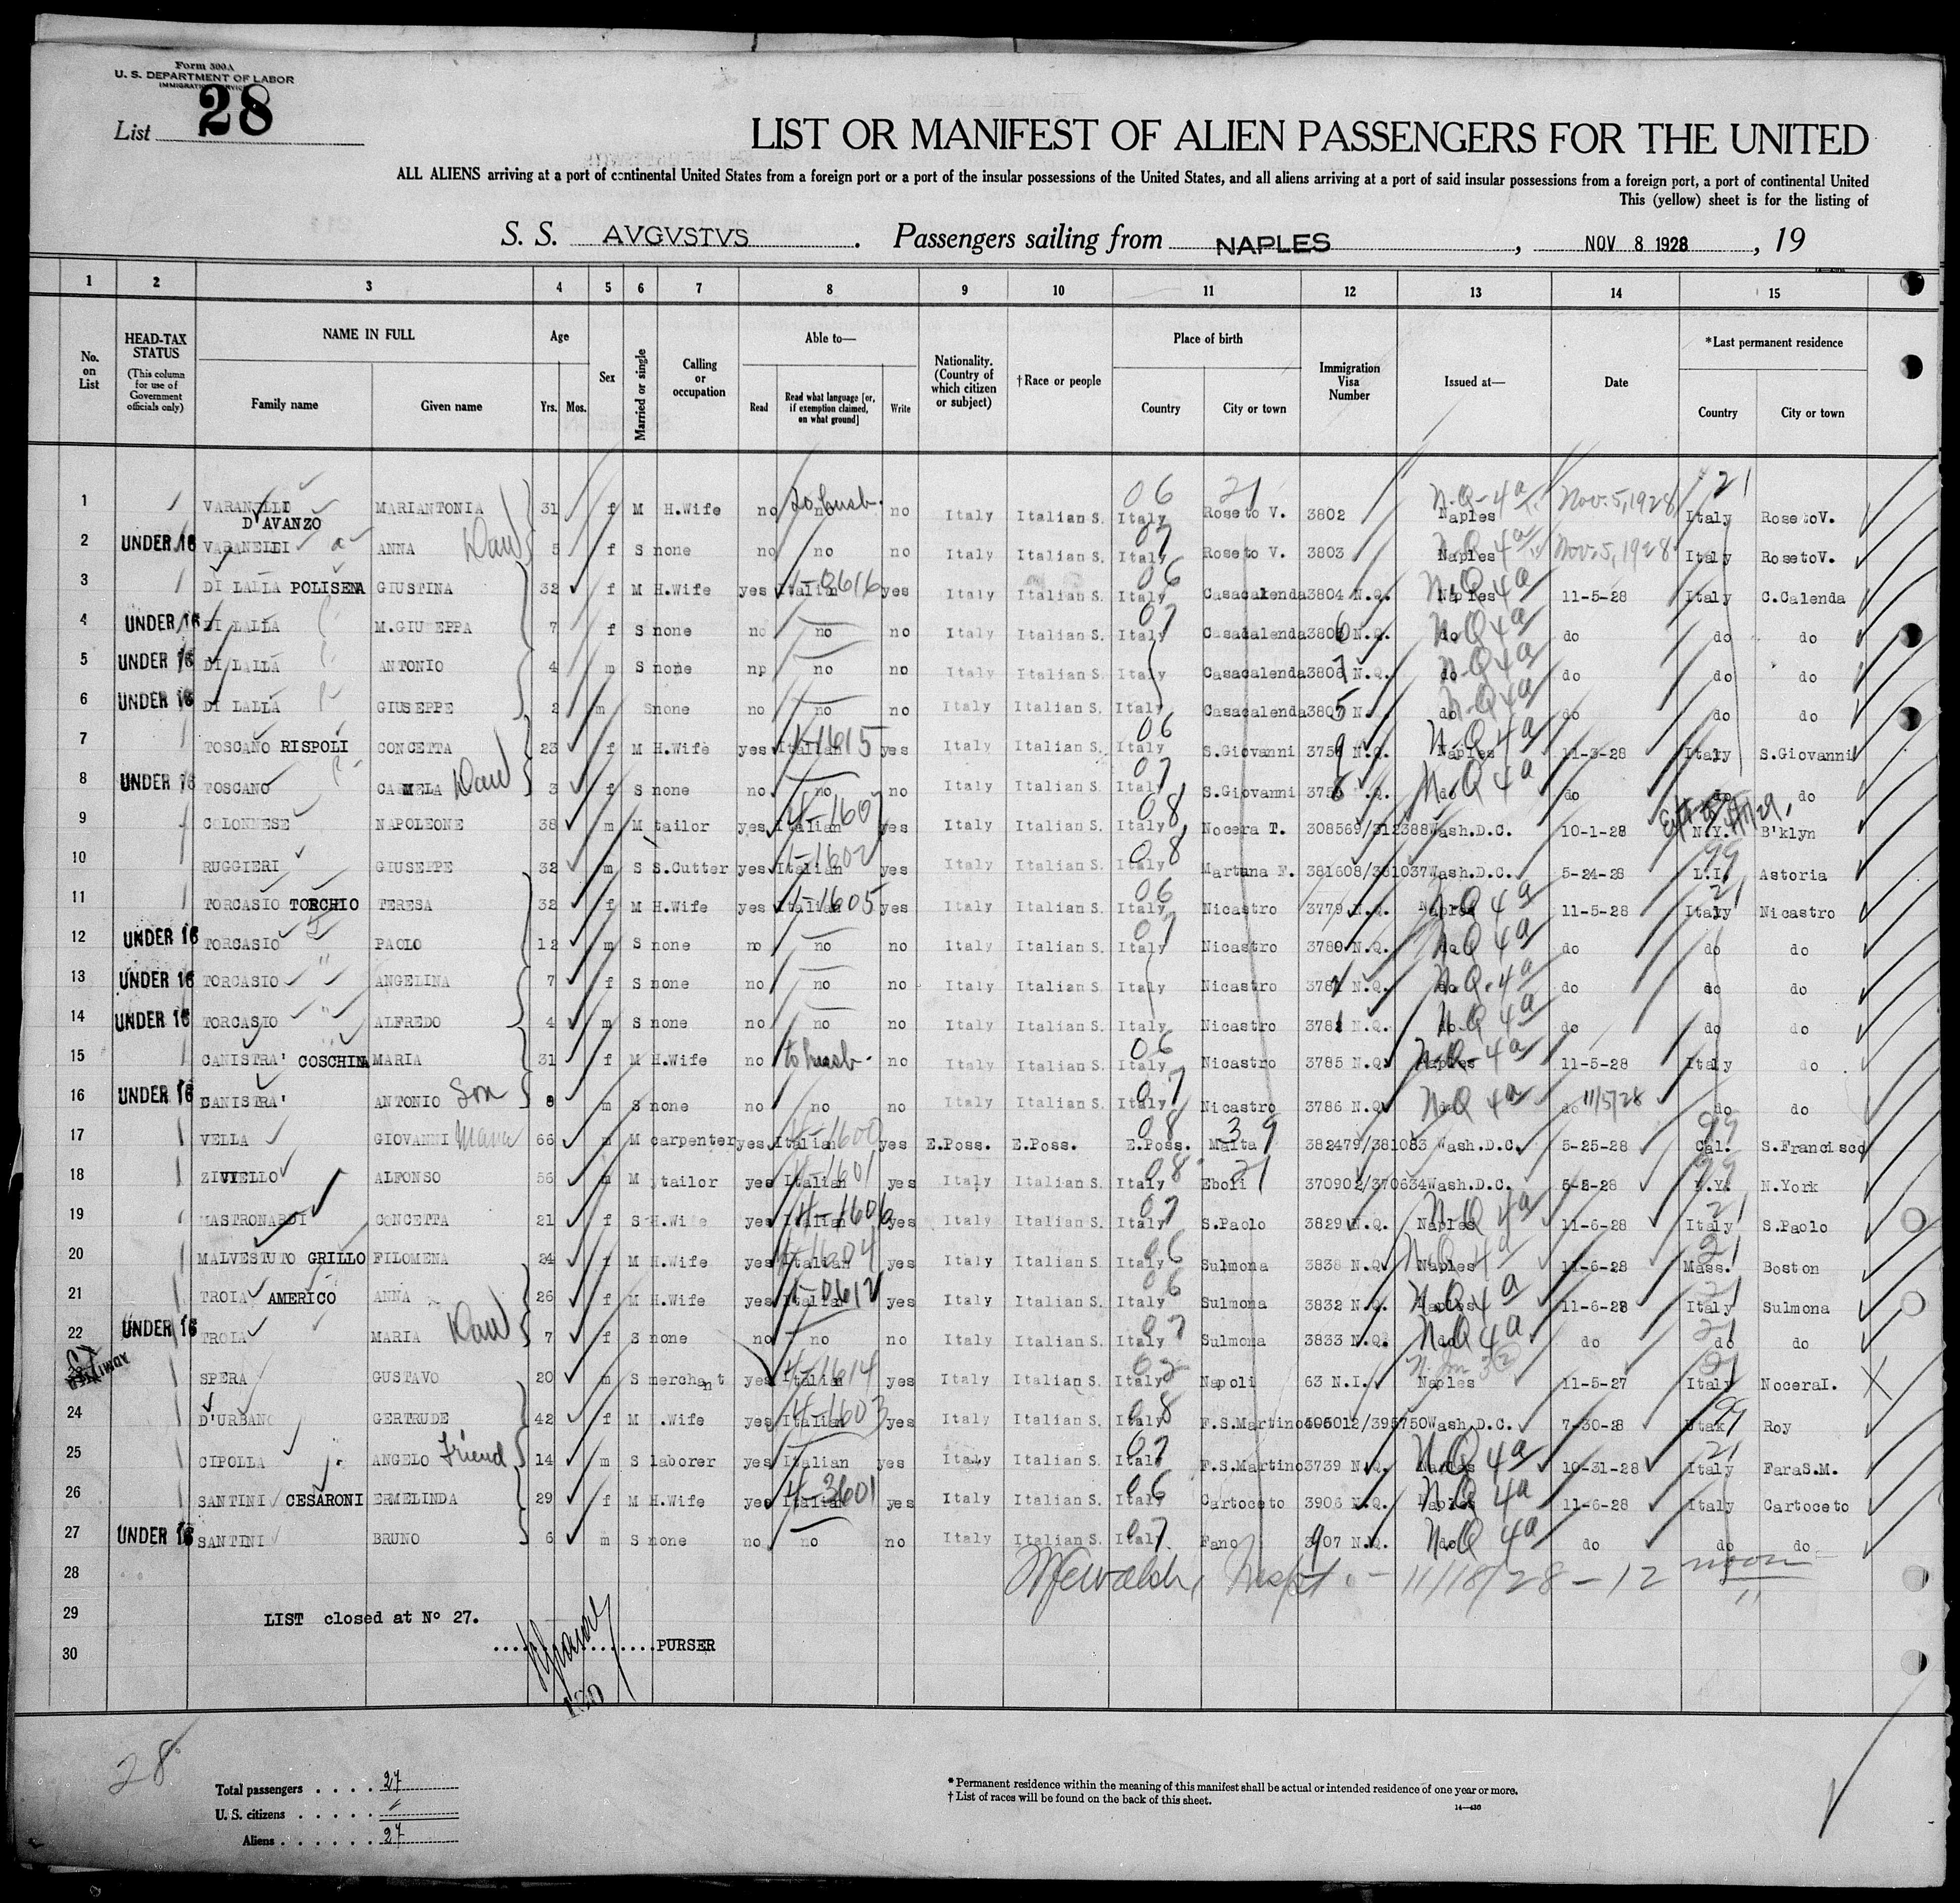 Form 500A
U. S. DEPARTMENT OF LABOR
IMMIGRATION SERVICE
List 28
LIST OR MANIFEST OF ALIEN PASSENGERS FOR THE UNITED
ALL ALIENS arriving at a port of continental United States from a foreign port or a port of the insular possessions of the United States, and all aliens arriving at a port of said insular possessions from a foreign port, a port of continental United
This (yellow) sheet is for the listing of
S. S. AVGVSTVS. Passengers sailing from NAPLES, NOV 8 1928, 19
1 2 3 4 5 6 7 8 9 10 11 12 13 14 15
No. on List
HEAD-TAX STATUS (This column for use of Government officials only)
NAME IN FULL Family name Given name
Age Yrs. Mos.
Sex
Married or single
Calling or occupation
Able to— Read Read what language [or, if exemption claimed, on what ground] Write
Nationality. (Country of which citizen or subject)
†Race or people
Place of birth Country City or town
Immigration Visa Number
Issued at—
Date
*Last permanent residence Country City or town
1 VARANELLI D'AVANZO MARIANTONIA 31 f M H.Wife no to husb. no Italy Italian S. 06 Italy 21 Roseto V. 3802 N.Q-4a Naples Nov. 5, 1928 21 Italy RosetoV.
2 UNDER 16 VARANELLI ANNA Dau 5 f S none no no no Italy Italian S. 07 Italy Roseto V. 3803 Naples 4a Nov 5, 1928 Italy RosetoV.
3 DI LALLA POLISENA GIUSTINA 32 f M H.Wife yes Italian yes Italy Italian S. 06 Italy Casacalenda 3804 N.Q. Naples N.Q 4a 11-5-28 Italy C.Calenda
4 UNDER 16 DI LALLA M.GIUSEPPA 7 f S none no no no Italy Italian S. 07 Italy Casacalenda 3806 N.Q. do N.Q 4a do do do
5 UNDER 16 DI LALLA ANTONIO 4 m S none np no no Italy Italian S. Italy Casacalenda 3807 N.Q. do N.Q 4a do do do
6 UNDER 16 DI LALLA GIUSEPPE 2 m S none no no no Italy Italian S. Italy Casacalenda 3805 N. do N.Q 4a do do do
7 TOSCANO RISPOLI CONCETTA 23 f M H.Wife yes Italian 1615 yes Italy Italian S. 06 Italy S.Giovanni 3759 N.Q. Naples N.Q 4a 11-3-28 Italy S.Giovanni
8 UNDER 16 TOSCANO CARMELA Dau 3 f S none no no no Italy Italian S. 07 Italy S.Giovanni 3758 .Q. do N.Q 4a do do do
9 COLONNESE NAPOLEONE 38 m M tailor yes Italian 4-1607 yes Italy Italian S. 08 Italy Nocera T. 308569/312388 Wash.D.C. 10-1-28 N.Y. B'klyn
10 RUGGIERI GIUSEPPE 32 m S S.Cutter yes Italian 4-1602 yes Italy Italian S. 08 Italy Martana F. 381608/381037 Wash.D.C. 5-24-28 99 L.I. Astoria
11 TORCASIO TORCHIO TERESA 32 f M H.Wife yes Italian 4-1605 yes Italy Italian S. 06 Italy Nicastro 3779 N.Q. Naples N.Q 4a 11-5-28 21 Italy Nicastro
12 UNDER 16 TORCASIO PAOLO 12 m S none no no no Italy Italian S. 07 Italy Nicastro 3780 N.Q. do N.Q 4a do do do
13 UNDER 16 TORCASIO " ANGELINA 7 f S none no no no Italy Italian S. Italy Nicastro N.Q. do N.Q. 4a do do do
14 UNDER 16 TORCASIO " ALFREDO 4 m S none no no no Italy Italian S. Italy Nicastro N.Q. do N.Q 4a do do do
15 CANISTRA' COSCHINA MARIA 31 f M H.Wife no to husb. no Italy Italian S. 06 Italy Nicastro 3785 N.Q. Naples N.Q-4a 11-5-28 Italy do
16 UNDER 16 CANISTRA' ANTONIO Son 8 m S none no no no Italy Italian S. 07 Italy Nicastro 3786 N.Q. do N.Q 4a do 11/5/28 do do
17 VELLA GIOVANNI Maria 66 m M carpenter yes Italian 4-1600 yes E.Poss. E.Poss. 08 E.Poss. 39 Malta 382479/381083 Wash.D.C. 5-25-28 99 Cal. S.Francisco
18 ZIVIELLO ALFONSO 56 m M tailor yes Italian 4-1601 yes Italy Italian S. 08 Italy 21 Eboli 370902/370634 Wash.D.C. 5-8-28 99 N.Y. N.York
19 MASTRONARDI CONCETTA 21 f S H.Wife yes Italian 4-1606 yes Italy Italian S. 07 Italy S.Paolo 3829 N.Q. Naples N.Q 4a 11-6-28 21 Italy S.Paolo
20 MALVESTUTO GRILLO FILOMENA 24 f M H.Wife yes Italian 4-1604 yes Italy Italian S. 06 Italy Sulmona 3838 N.Q. Naples N.Q 4a 11-6-28 21 Mass. Boston
21 TROIA AMERICO ANNA 26 f M H.Wife yes Italian yes Italy Italian S. 06 Italy Sulmona 3832 N.Q. Naples N.Q 4a 11-6-28 21 Italy Sulmona
22 UNDER 16 TROIA MARIA Dau 7 f S none no no no Italy Italian S. 07 Italy Sulmona 3833 N.Q. do N.Q 4a do 21 do do
SPERA GUSTAVO 20 m S merchant yes Italian 4-1614 yes Italy Italian S. 02 Italy Napoli 63 N.I. Naples 11-5-27 21 Italy NoceraI.
24 D'URBANO GERTRUDE 42 f M .Wife yes Italian 4-1603 yes Italy Italian S. 08 Italy F.S.Martino Wash.D.C. 7-30-28 99 Utah Roy
25 CIPOLLA ANGELO Friend 14 m S laborer yes Italian yes Italy Italian S. 07 Italy F.S.Martino 3739 N.Q. Naples N.Q 4a 10-31-28 21 Italy FaraS.M.
26 SANTINI CESARONI ERMELINDA 29 f M H.Wife yes Italian 4-3601 yes Italy Italian S. 06 Italy Cartoceto 3906 N.Q. Naples N.Q 4a 11-6-28 Italy Cartoceto
27 UNDER 16 SANTINI BRUNO 6 m S none no no no Italy Italian S. 07 Italy Fano 3907 N.Q. do N.Q 4a do do do
28 11/18/28 - 12 noon
29 LIST closed at No 27.
PURSER
30
28
Total passengers . . . . 27
U. S. citizens . . . . .
Aliens . . . . . . 27
* Permanent residence within the meaning of this manifest shall be actual or intended residence of one year or more.
† List of races will be found on the back of this sheet.
14—430